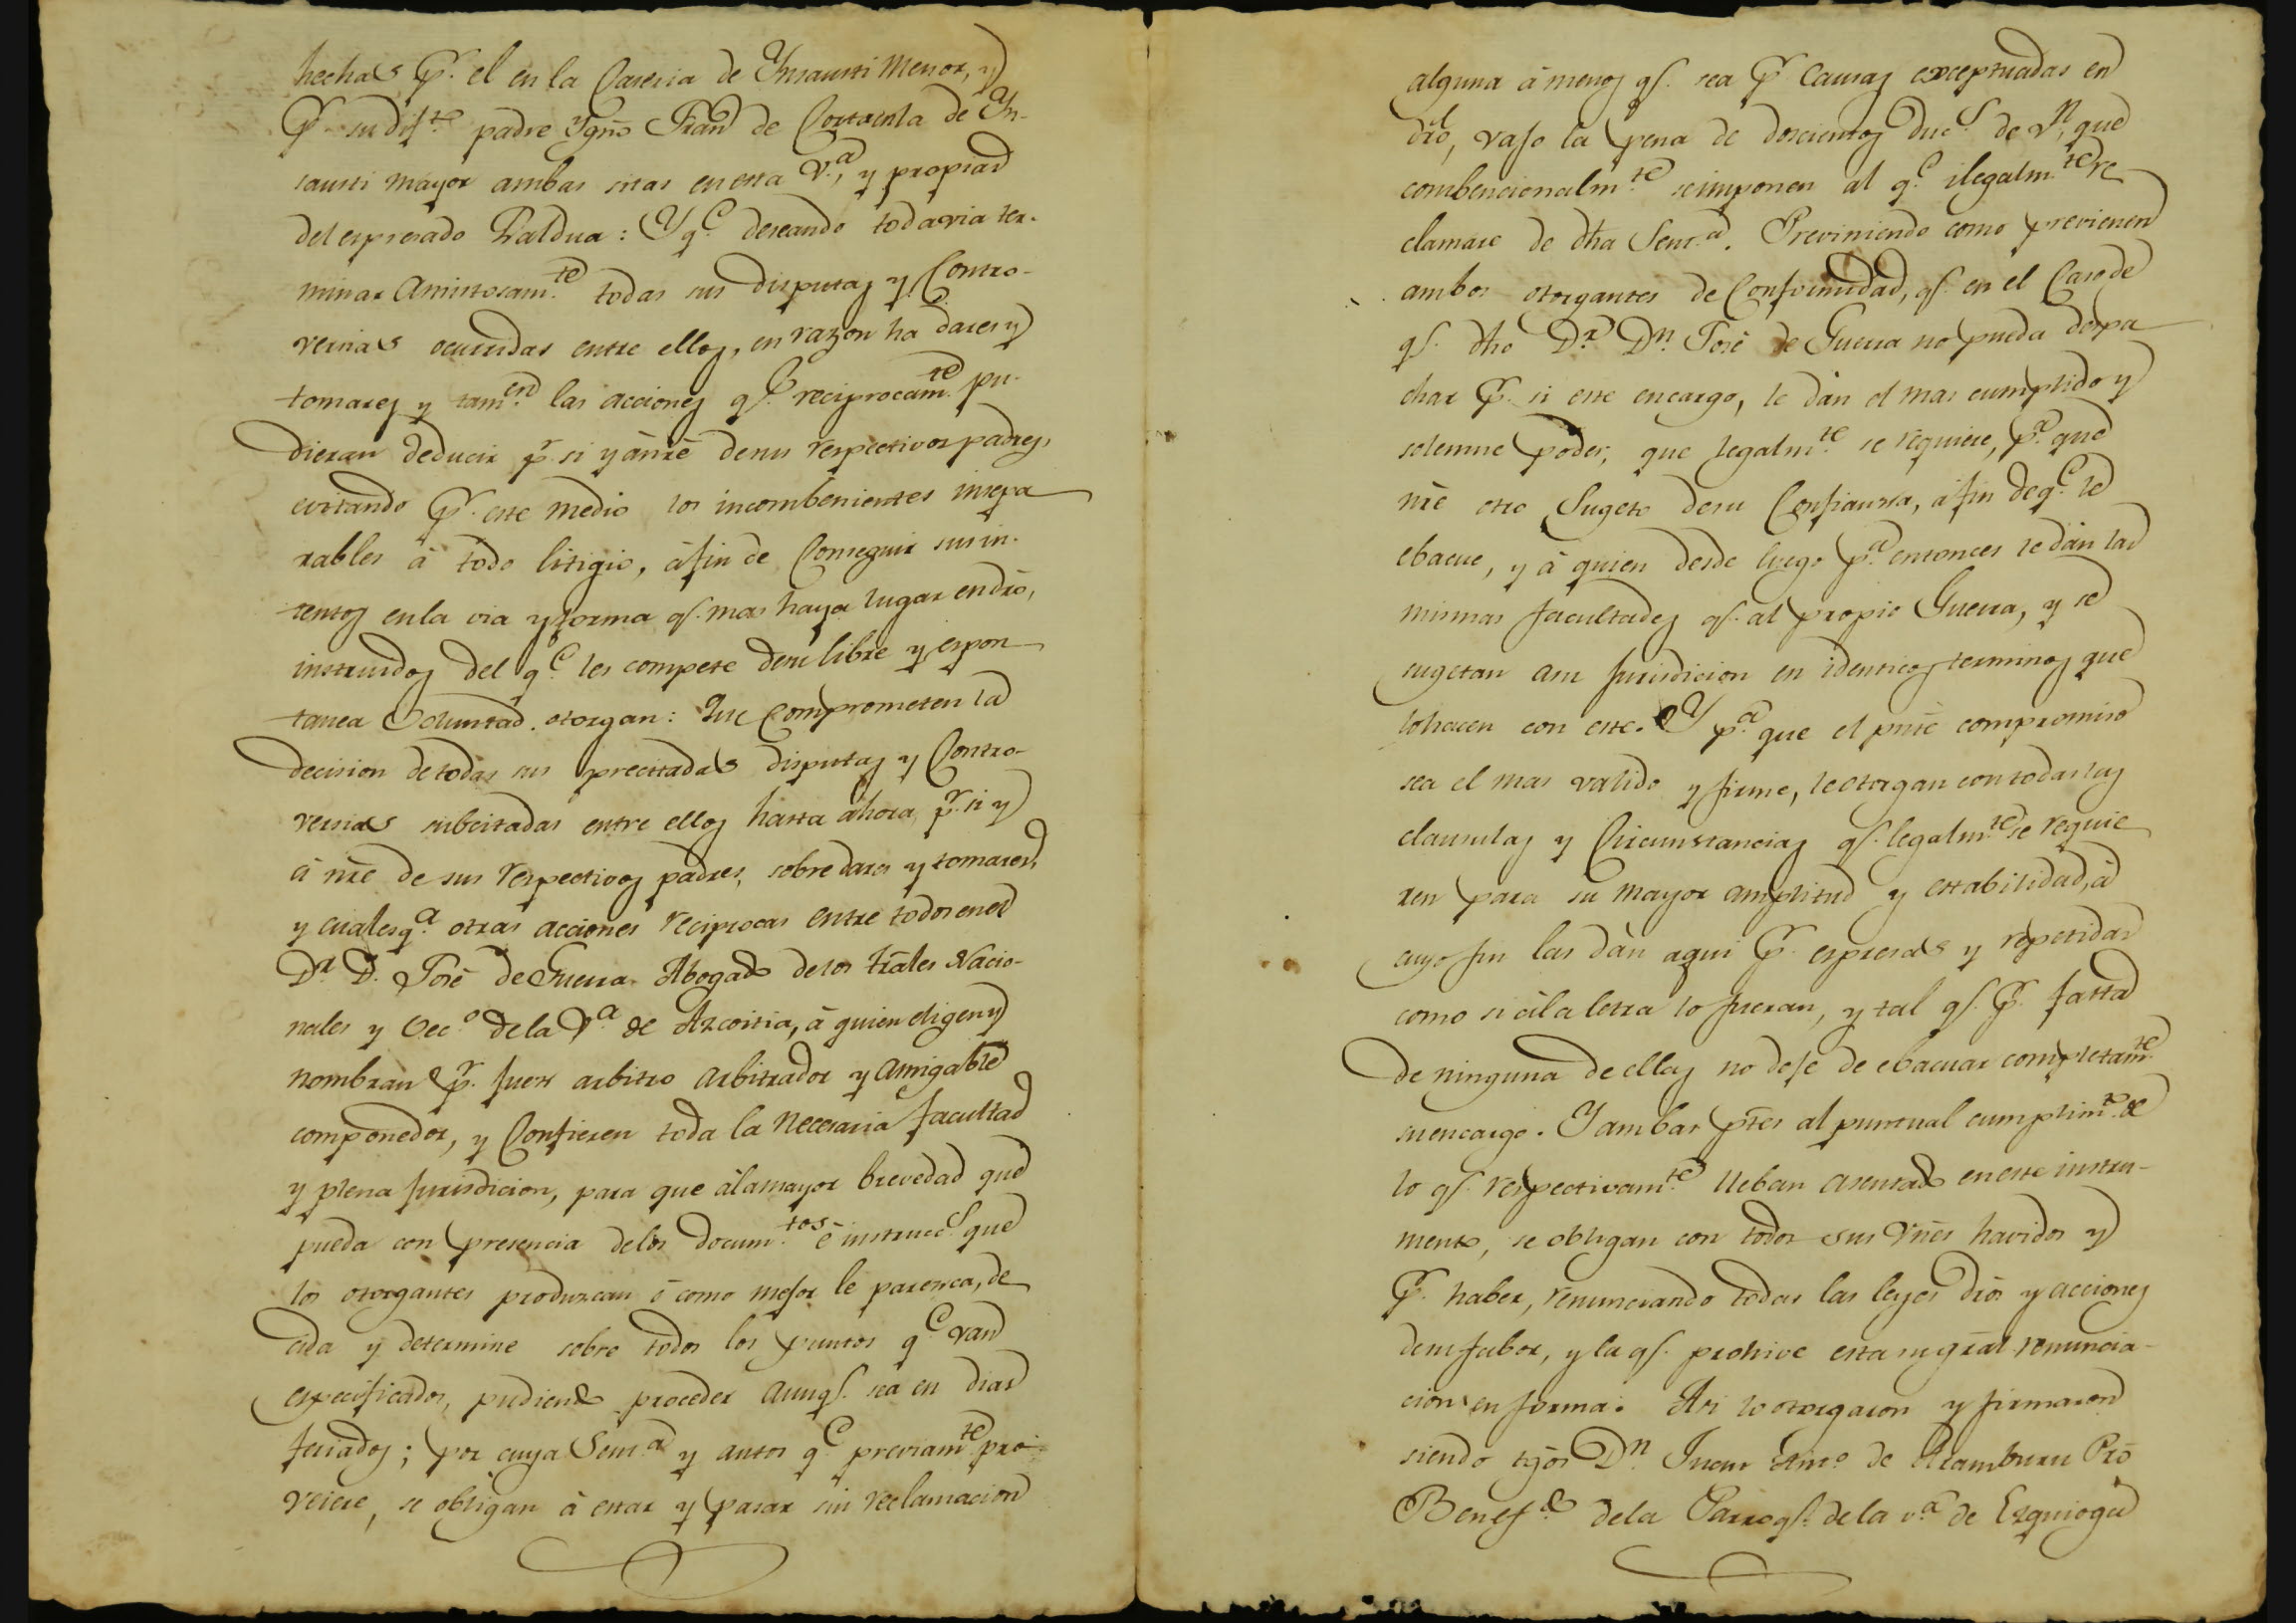 hechas pr. el en la Caseria de Ynsausti Menor, y
pr su dif.te padre Ygn.o Fran.co de Cortaenla de Yn-
sausti mayor ambas sitas en esta V.a, y propias
del espresado Zaldua: Y q.e deseando todavia ter-
minar Amistosam.te todas sus disputas y Contro-
versias ocurridas entre ellos, en razon ha dares y
tomares y tam.en las acciones q.e reciprocam.te pu-
dieran deducir pr. si y à nre de sus respectivos padres,
evitando pr. este medio los incombenientes insepa
rables à todo litigio, à fin de Conseguir sus in-
tentos en la via y forma q.e mas haya lugar en dro,
instruidos del q.e les compete de su libre y espon
tanea Voluntad. otorgan: Que Comprometen la
decision de todas sus precitadas disputas y Contro-
versias subcitadas entre ellos hasta ahora, pr. si y
à nre de sus respectivos padres, sobre dares y tomares,
y cualesq.a otras acciones reciprocas entre todos en el
Dr. D. José de Guerra Abogado de los trales Nacio-
nales y Vec.o de la V.a de Azcoitia, à quien eligen y
nombran pr. Juez arbitro arbitrador y Amigable
componedor, y Confieren toda la necesaria facultad
y plena Jurisdicion, para que àla mayor brevedad que
pueda con presencia delos docum.tos è instrucc.s que
los otorgantes produzcan ò como mejor le parezca, de
cida y determine sobre todos los puntos q.e van
especificados, pudiendo proceder aunq.e sea en dias
feriados; por cuya Sent.a y autos q.e previam.te pro-
veiere, se obligan à estar y pasar sin reclamacion
alguna à menos q.e sea pr. Causas exceptuadas en
dro, vajo la pena de doscientos duc.s de V.n, que
combencionalm.te se imponen al q.e ilegalm.te re
clamare de dha Sent.a. Previniendo como previenen
ambos otorgantes de Conformidad, q.e en el Caso de
q.e dho Dr. Dn. José de Guerra no pueda despa
char pr. si este encargo, le dàn el mas cumplido y
solemne poder, que legalm.te se requiere, p.a que
nre otro Sugeto de su Confianza, àfin de q.e le
ebacue, y à quien desde luego p.a entonces le dàn las
mismas facultades q.e al propio Guerra, y se
sugetan asu Jurisdicion en identicos terminos que
lo hacen con este. Y p.a que el pnte compromiso
sea el mas valido y firme, le otorgan con todas las
clausulas y Circunstancias q.e legalm.te se requie
ren para su mayor amplitud y estabilidad, à
cuyo fin las dàn aqui pr. espresas y repetidas
como si àla letra lo fueran, y tal q.e pr. falta
de ninguna de ellas no deje de ebacuar completam.te
su encargo. Y ambas ptes al puntual cumplim.to de
lo q.e respectivam.te lleban asentado en este instru-
mento, se obligan con todos sus Vnes havidos y
pr. haber, renunciando todas las leyes dros y acciones
de su fabor, y la q.e prohive esta su gral renuncia-
cion en forma. Asi lo otorgaron y firmaron
siendo tgos Dn. Juan Ant.o de Aramburu Pro
Benef.do dela Parroq.a de la v.a de Ezquioga